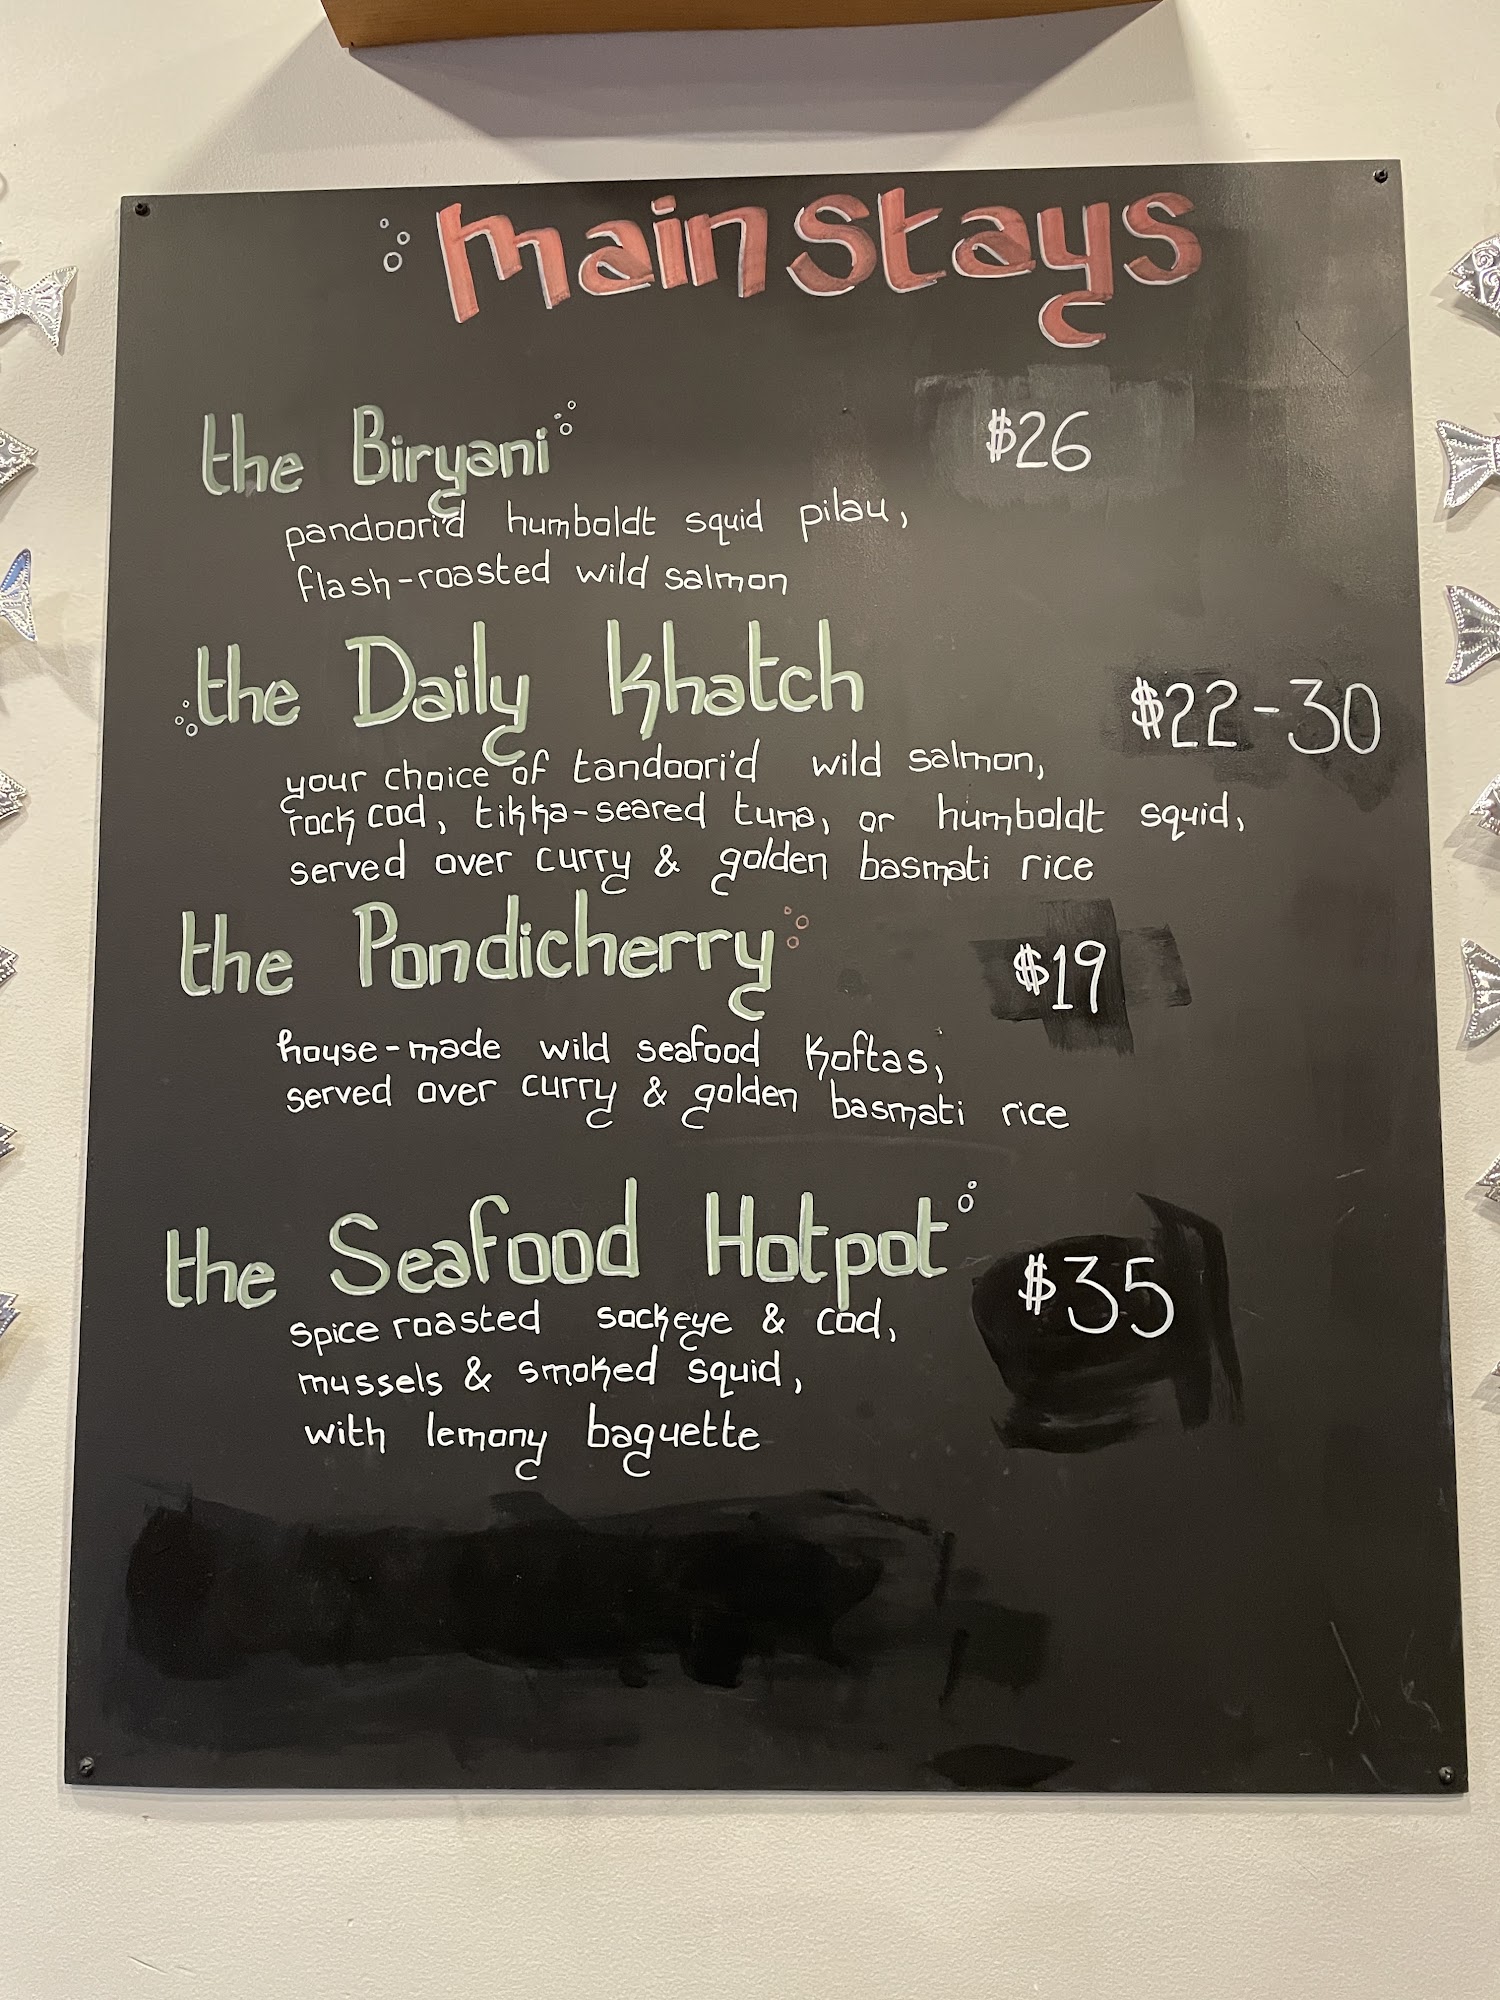 mainstays
the Biryani $26
pandoori'd humboldt squid pilau,
flash-roasted wild salmon
the Daily Khatch $22-30
your choice of tandoori'd wild salmon,
rock cod, tikka-seared tuna, or humboldt squid,
served over curry & golden basmati rice
the Pondicherry $19
house-made wild seafood koftas,
served over curry & golden basmati rice
the Seafood Hotpot $35
spice roasted sockeye & cod,
mussels & smoked squid,
with lemony baguette